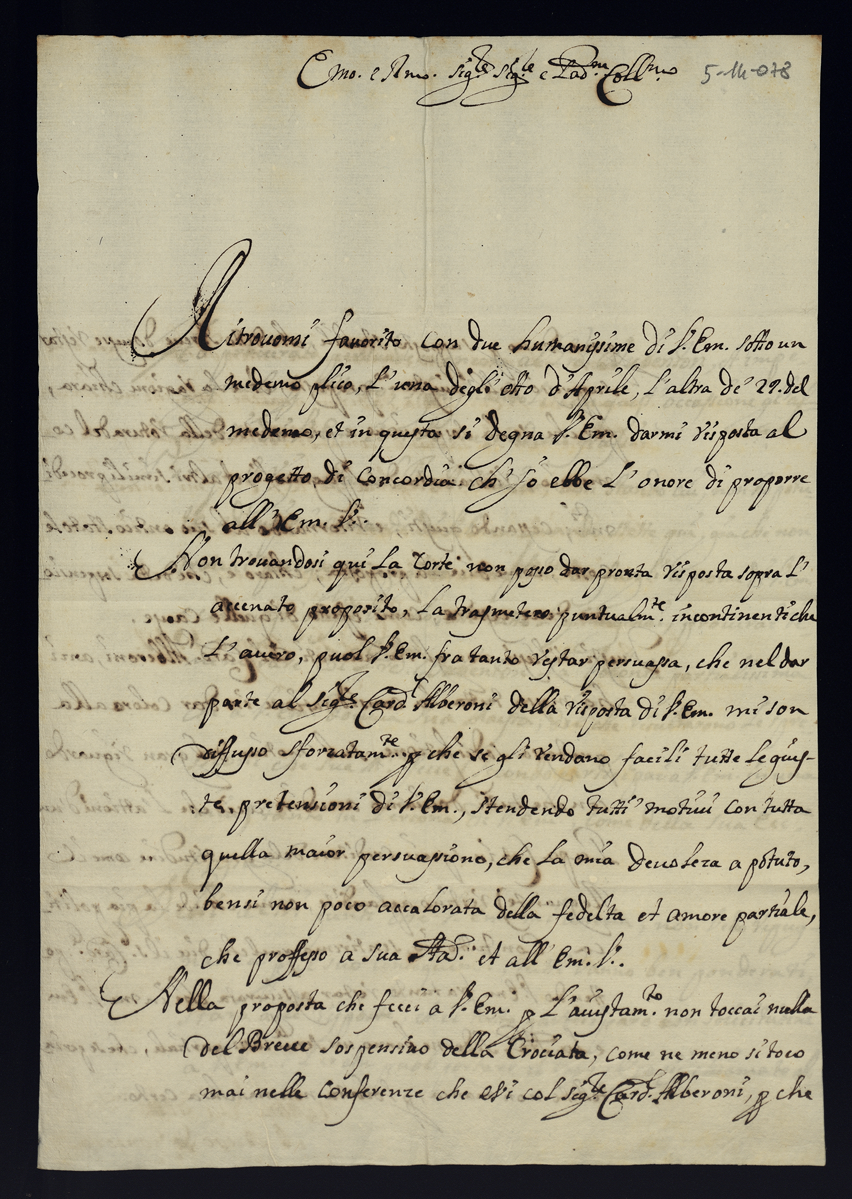 Emo. e Rmo. Sig.re Sig.re e Pad.m Coll.mo 5-14-078
Ritrovomi favorito con due humanissime di V. Em. sotto un
medemo plico, L'una degli otto d'Aprile, L'altra de' 29. del
medemo, et in questa si degna V. Em. darmi risposta al
progetto, di concordia ch'io ebbe L'onore di proporre
all'Em. V.
Non trovandosi qui La Corte non posso dar pronta risposta sopra L'
accenato proposito, La trasmetero puntualm.te incontinenti che
L'avero, puol V. Em. fra tanto restar persuassa, che nel dar
parte al Sig.re Card.l Alberoni della risposta di V. Em. mi son
diffusso sforzatam.te p che se gli rendano facili tutte le gius-
te pretensioni di V. Em., stendendo tutti motivi con tutta
quella maior persuassione, che La mia devoleza a potuto,
bensi non poco accalorata della fedelta et amore partiale,
che professo a sua Sta. et all'Em. V.
Nella proposta che feci a V. Em. p L'aiustam.to non toccai nulla
del Breve sospensivo della Crociata, come ne meno si toco
mai nelle conferenze che ebi col Sig.re Card.l Alberoni, p che